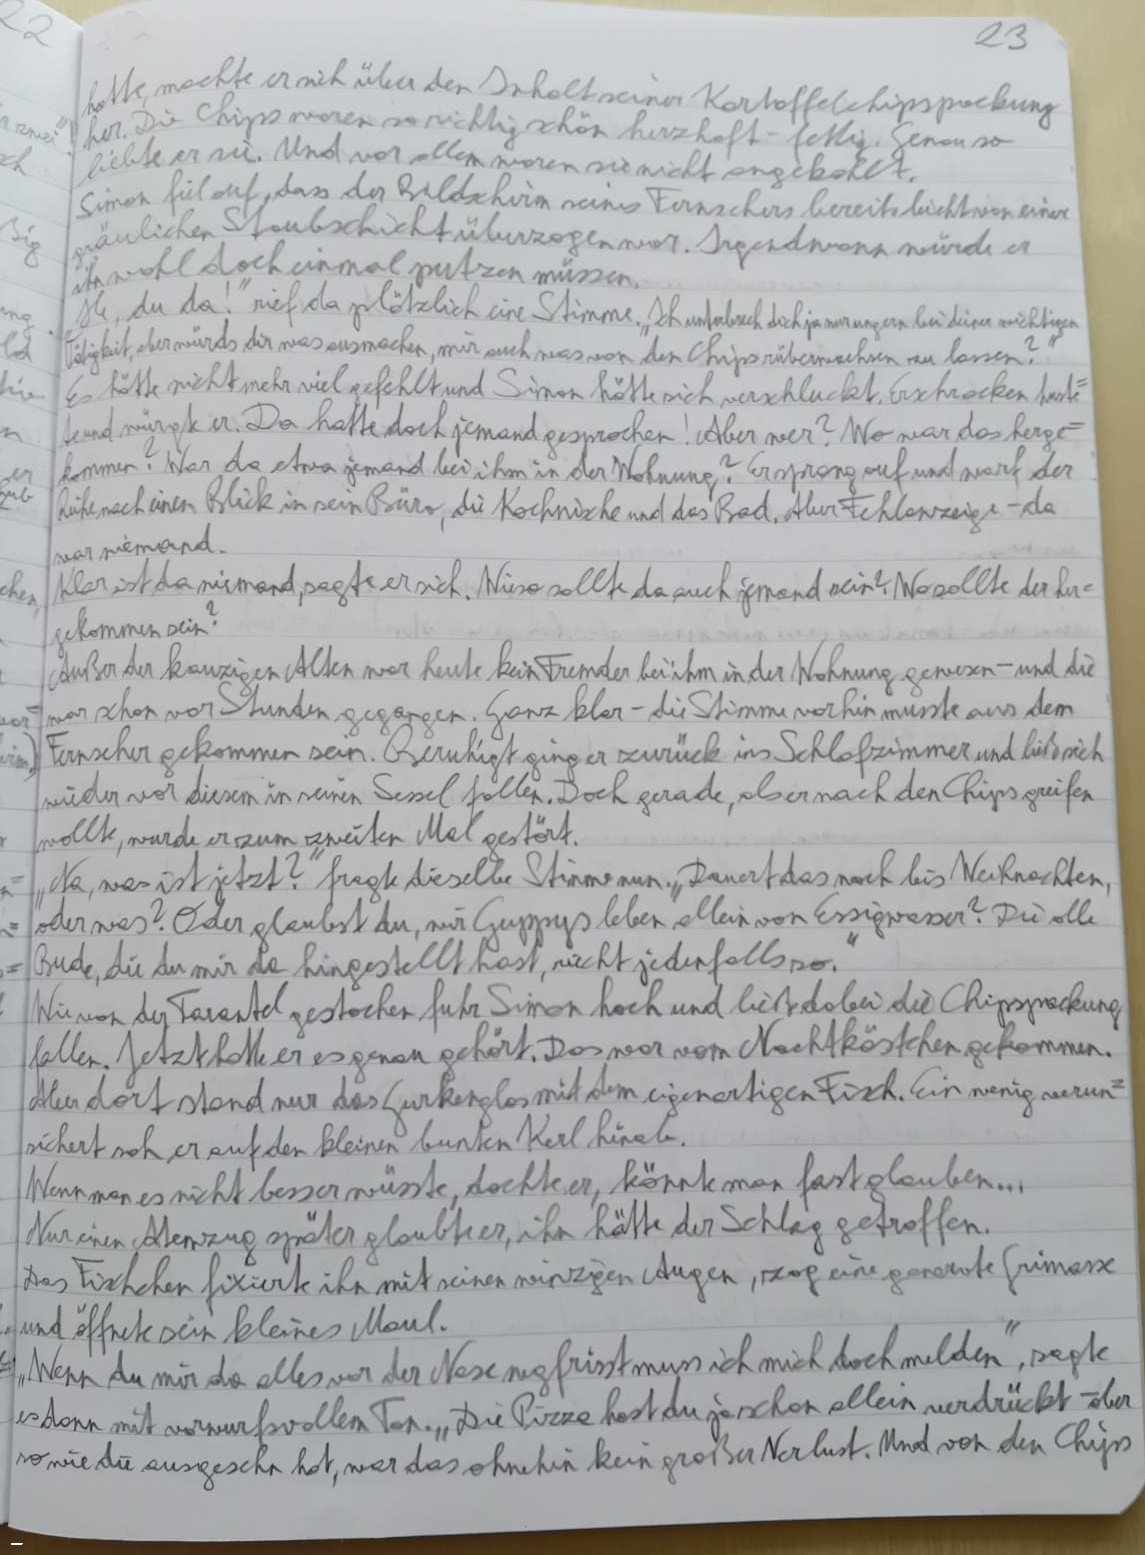 23
hatte, machte er sich über den Inhalt seiner Kartoffelchipspackung
her. Die Chips waren so richtig schön herzhaft - fettig. Genau so
liebte er sie. Und vor allem waren sie nicht angekohlt.
Simon fiel auf, dass der Bildschirm seines Fernsehers bereits leicht von einer
gräulichen Staubschicht überzogen war. Irgendwann würde er
ihn wohl doch einmal putzen müssen.
"He, du da!" rief da plötzlich eine Stimme. „Ich unterbrech dich ja nur ungern bei deiner wichtigen
Tätigkeit, aber würds dir was ausmachen, mir auch was von den Chips rüberwachsen zu lassen?"
Es hätte nicht mehr viel gefehlt und Simon hätte sich verschluckt. Erschrocken huste=
te und würgte er. Da hatte doch jemand gesprochen! Aber wer? Wo war das herge=
kommen? War da etwa jemand bei ihm in der Wohnung? Er sprang auf und warf der
Reihe nach einen Blick in sein Büro, die Kochnische und das Bad. Aber Fehlanzeige - da
war niemand.
Klar ist da niemand, sagte er sich. Wieso sollte da auch jemand sein? Wo sollte der her=
gekommen sein?
Außer der kauzigen Alten war heute kein Fremder bei ihm in der Wohnung gewesen - und die
war schon vor Stunden gegangen. Ganz klar - die Stimme vorhin musste aus dem
Fernseher gekommen sein. Beruhigt ging er zurück ins Schlafzimmer und ließ sich
wieder vor diesem in seinen Sessel fallen. Doch gerade, als er nach den Chips greifen
wollte, wurde er zum zweiten Mal gestört.
„Na, was ist jetzt?" fragte dieselbe Stimme nun. „Dauert das noch bis Weihnachten,
oder was? Oder glaubst du, wir Guppys leben allein von Essigwasser? Die olle
Bude, die du mir da hingestellt hast, riecht jedenfalls so."
Wie von der Tarantel gestochen fuhr Simon hoch und ließ dabei die Chipspackung
fallen. Jetzt hatte er es genau gehört. Das war vom Nachtkästchen gekommen.
Aber dort stand nur das Gurkenglas mit dem eigenartigen Fisch. Ein wenig verun=
sichert sah er auf den kleinen bunten Kerl hinab.
Wenn man es nicht besser wüsste, dachte er, könnte man fast glauben...
Nur einen Atemzug später glaubte er, ihn hätte der Schlag getroffen.
Das Fischchen fixierte ihn mit seinen winzigen Augen, zog eine genervte Grimasse
und öffnete sein kleines Maul.
„Wenn du mir da alles vor der Nase wegfrisst muss ich mich doch melden", sagte
es dann mit vorwurfsvollem Ton. „Die Pizza hast du ja schon allein verdrückt - aber
so wie die ausgesehn hat, war das ohnehin kein großer Verlust. Und von den Chips